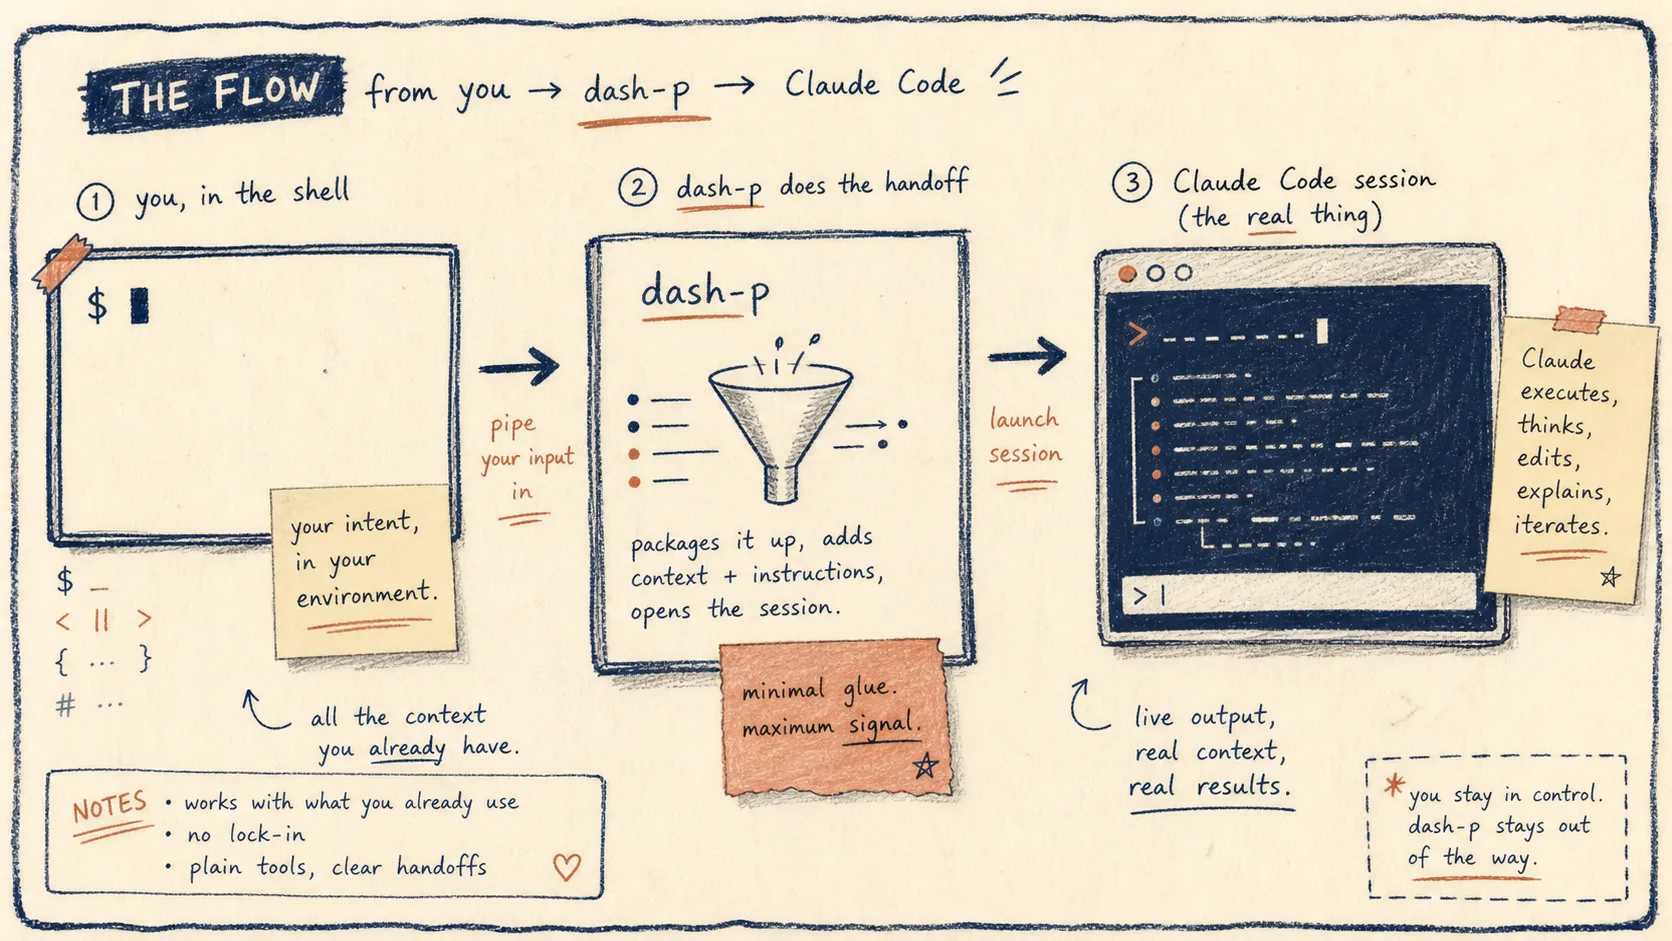 THE FLOW from you → dash-p → Claude Code
① you, in the shell
$
your intent,
in your
environment.
$ _
< || >
{ ... }
# ...
all the context
you already have.
pipe
your input
in
② dash-p does the handoff
dash-p
packages it up, adds
context + instructions,
opens the session.
minimal glue.
maximum signal.
launch
session
③ Claude Code session
(the real thing)
>
> |
Claude
executes,
thinks,
edits,
explains,
iterates.
live output,
real context,
real results.
NOTES
• works with what you already use
• no lock-in
• plain tools, clear handoffs
* you stay in control.
dash-p stays out
of the way.